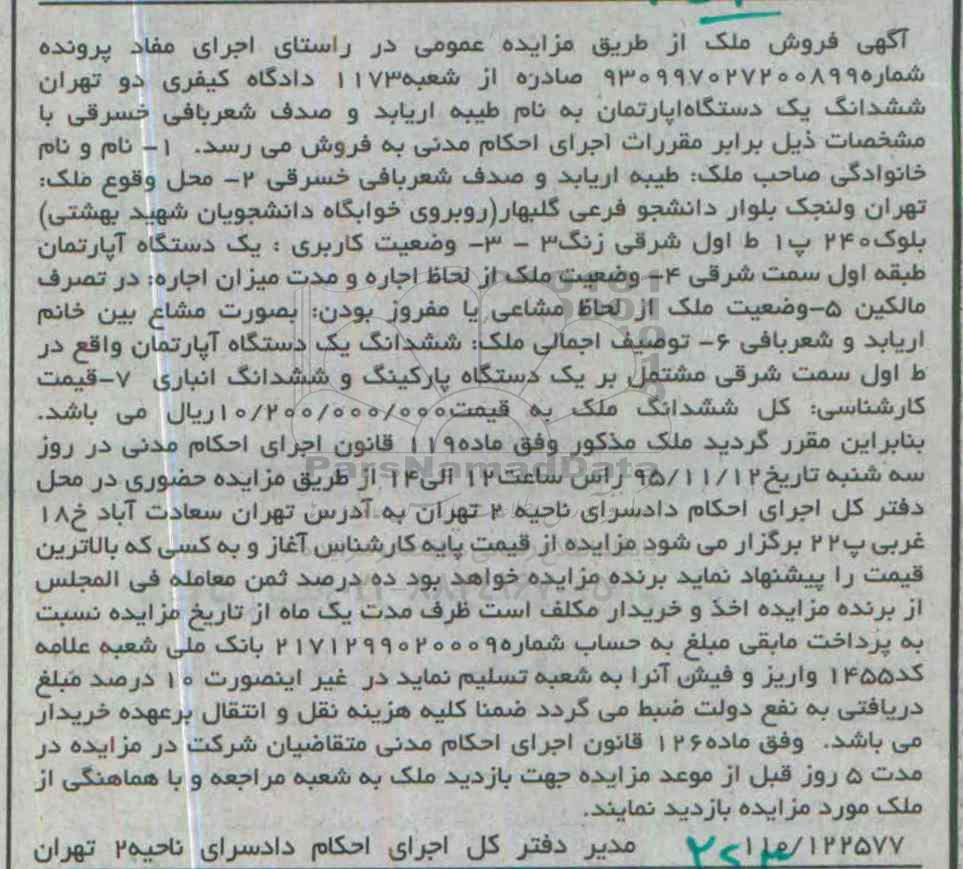 آگهی فروش ملک از طریق مزایده عمومی در راستای اجرای مفاد پرونده
شماره۹۳۰۹۹۷۰۲۷۲۰۰۸۹۹ صادره از شعبه۱۱۷۳ دادگاه کیفری دو تهران
ششدانگ یک دستگاهاپارتمان به نام طیبه اریابد و صدف شعربافی خسرقی با
مشخصات ذیل برابر مقررات اجرای احکام مدنی به فروش می رسد. ۱- نام و نام
خانوادگی صاحب ملک: طیبه اریابد و صدف شعربافی خسرقی ۲- محل وقوع ملک:
تهران ولنجک بلوار دانشجو فرعی گلبهار(روبروی خوابگاه دانشجویان شهید بهشتی)
بلوک۲۴۰ پ۱ ط اول شرقی زنگ۳ - ۳- وضعیت کاربری : یک دستگاه آپارتمان
طبقه اول سمت شرقی ۴- وضعیت ملک از لحاظ اجاره و مدت میزان اجاره: در تصرف
مالکین ۵-وضعیت ملک از لحاظ مشاعی یا مفروز بودن: بصورت مشاع بین خانم
اریابد و شعربافی ۶- توصیف اجمالی ملک: ششدانگ یک دستگاه آپارتمان واقع در
ط اول سمت شرقی مشتمل بر یک دستگاه پارکینگ و ششدانگ انباری ۷-قیمت
کارشناسی: کل ششدانگ ملک به قیمت۱۰/۲۰۰/۰۰۰/۰۰۰ریال می باشد.
بنابراین مقرر گردید ملک مذکور وفق ماده۱۱۹ قانون اجرای احکام مدنی در روز
سه شنبه تاریخ۹۵/۱۱/۱۲ راس ساعت۱۲ الی۱۴ از طریق مزایده حضوری در محل
ParsNamadData
دفتر کل اجرای احکام دادسرای ناحیه ۲ تهران به آدرس تهران سعادت آباد خ۱۸
غربی پ۲۲ برگزار می شود مزایده از قیمت پایه کارشناس آغاز و به کسی که بالاترین
قیمت را پیشنهاد نماید برنده مزایده خواهد بود ده درصد ثمن معامله فی المجلس
از برنده مزایده اخذ و خریدار مکلف است ظرف مدت یک ماه از تاریخ مزایده نسبت
به پرداخت مابقی مبلغ به حساب شماره۲۱۷۱۲۹۹۰۲۰۰۰۹ بانک ملی شعبه علامه
کد۱۴۵۵ واریز و فیش آنرا به شعبه تسلیم نماید در غیر اینصورت ۱۰ درصد مبلغ
دریافتی به نفع دولت ضبط می گردد ضمنا کلیه هزینه نقل و انتقال برعهده خریدار
می باشد. وفق ماده۱۲۶ قانون اجرای احکام مدنی متقاضیان شرکت در مزایده در
مدت ۵ روز قبل از موعد مزایده جهت بازدید ملک به شعبه مراجعه و با هماهنگی از
ملک مورد مزایده بازدید نمایند.
۱۱۰/۱۲۲۵۷۷ مدیر دفتر کل اجرای احکام دادسرای ناحیه۲ تهران